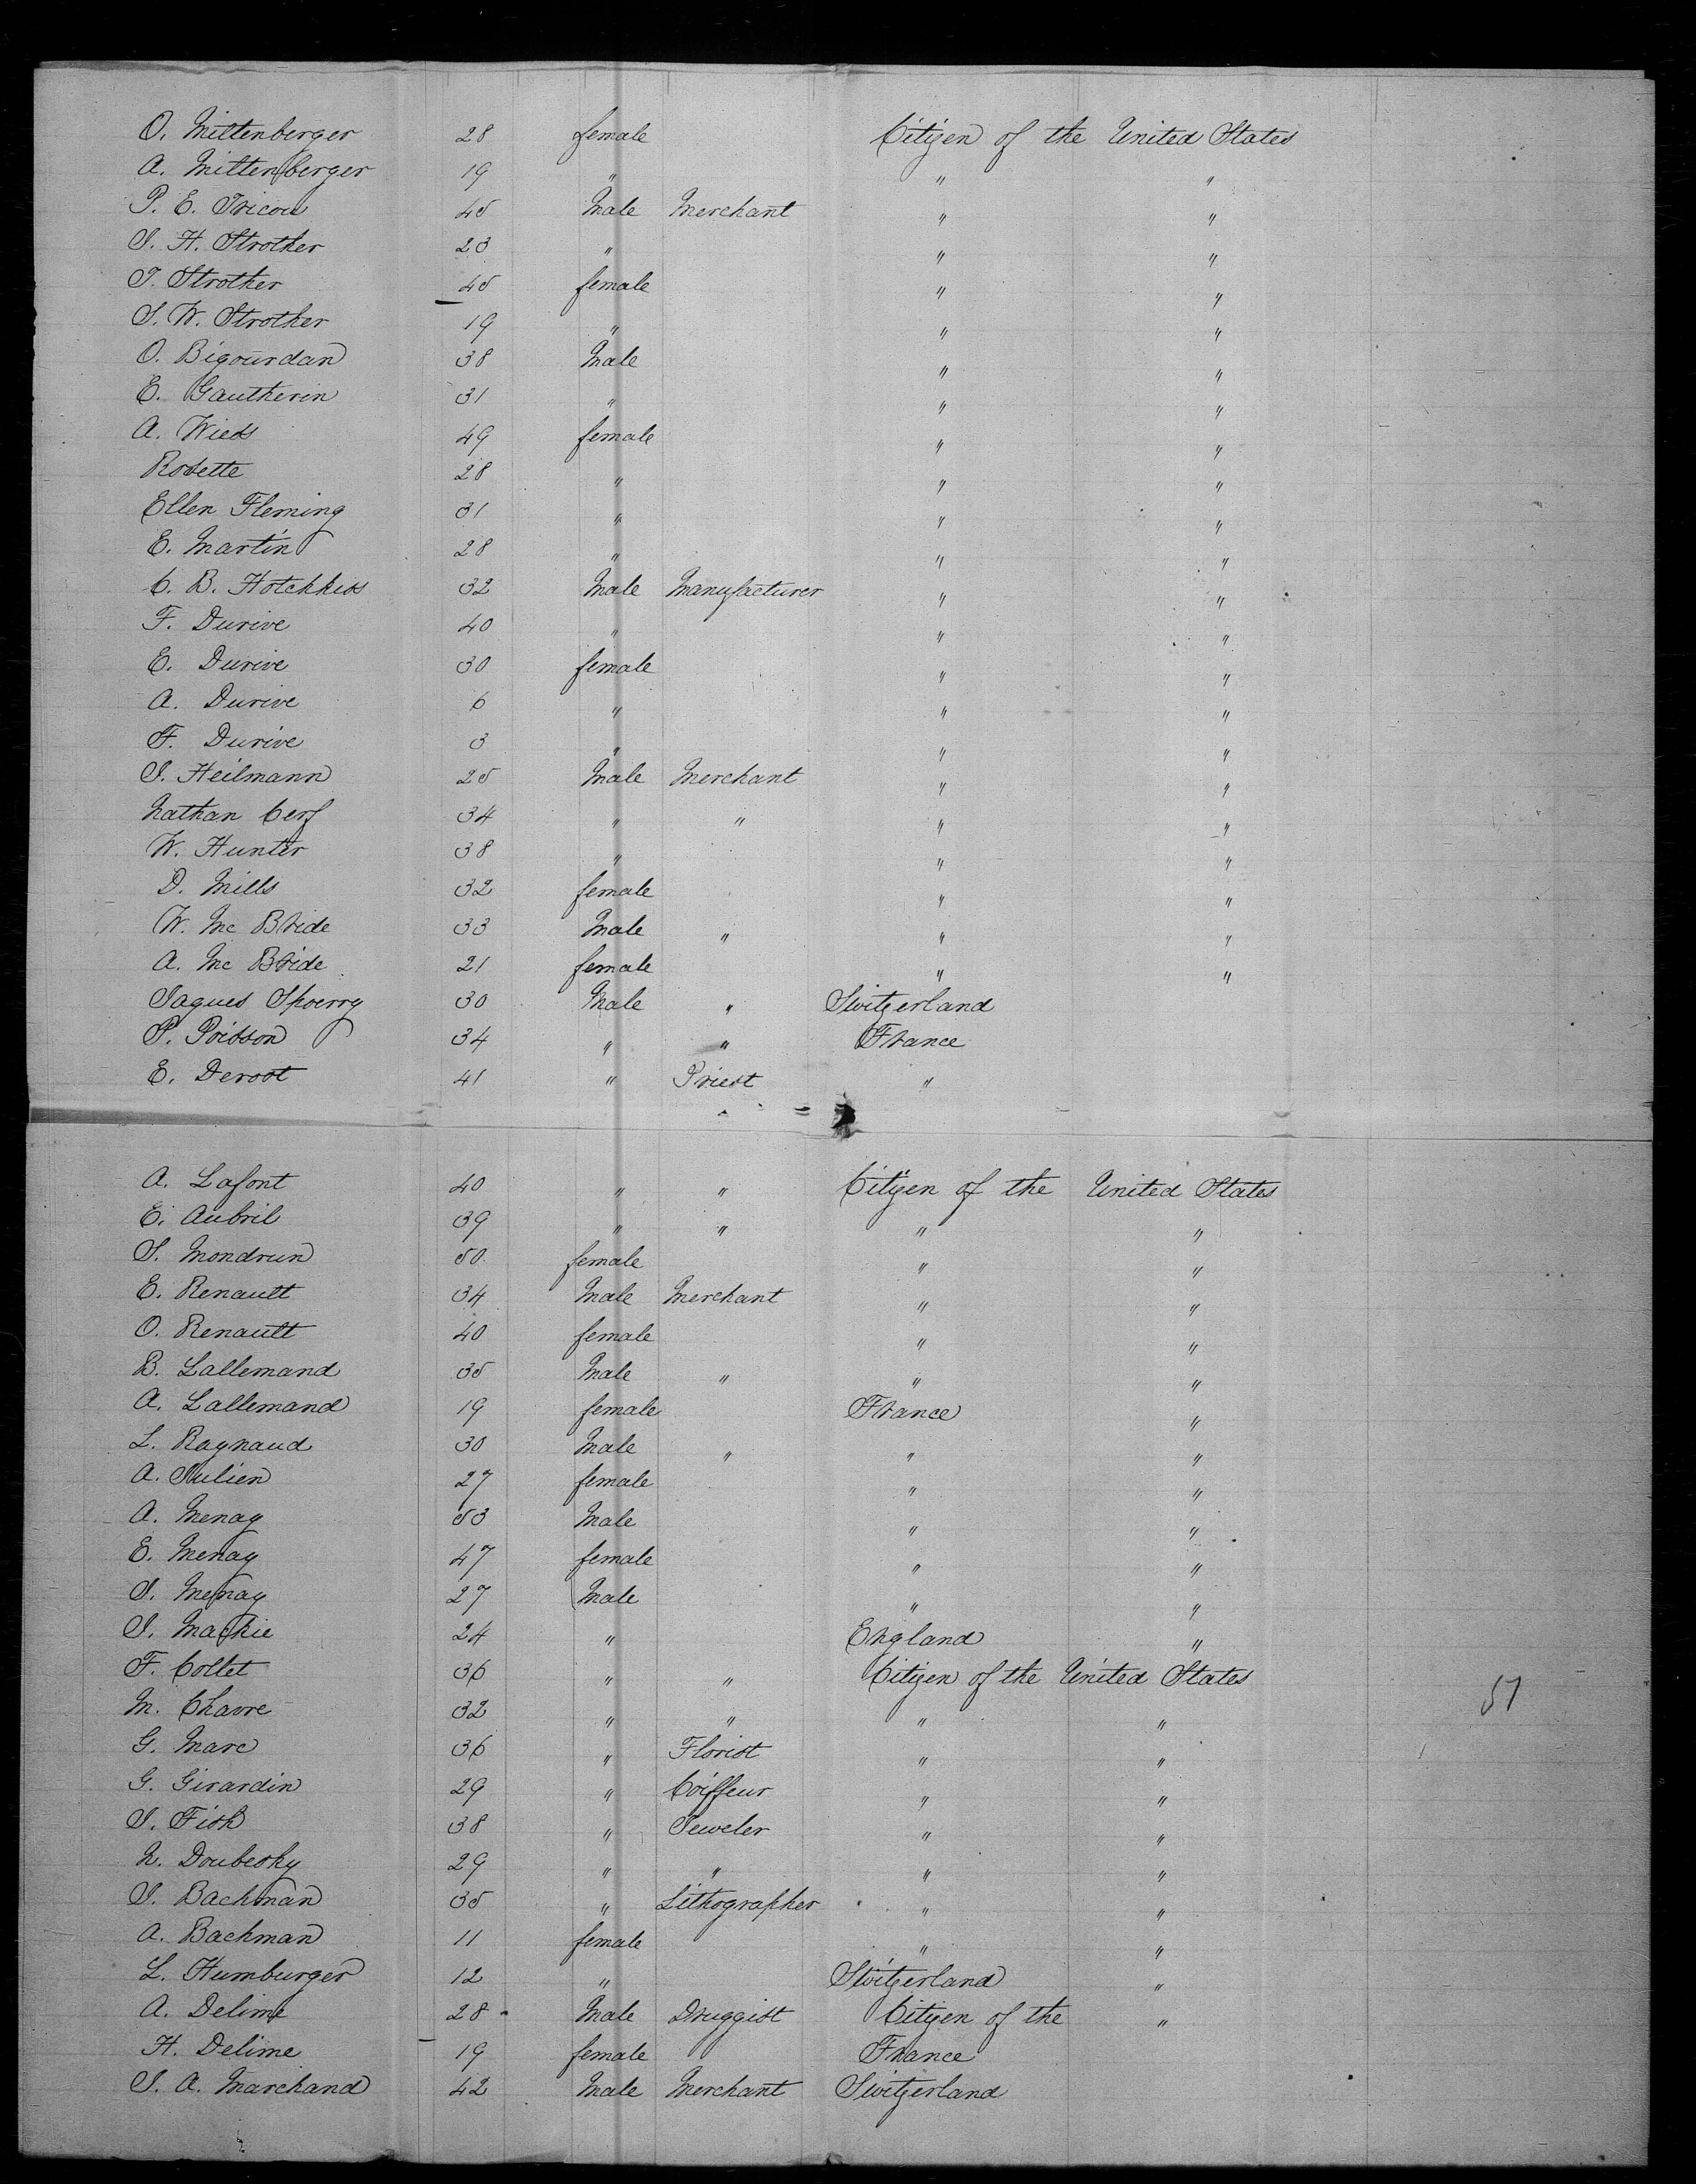 O. Miltenberger 28 female Citizen of the United States
A. Miltenberger 19 " " "
P. E. Tricou 45 Male Merchant " "
S. H. Strother 23 " " "
T. Strother 45 female " "
S. W. Strother 19 " " "
O. Bigourdan 38 Male " "
E. Gautherin 31 " " "
A. Wiess 49 female " "
Rosette 28 " " "
Ellen Fleming 31 " " "
E. Martin 28 " " "
C. B. Hotchkiss 32 Male Manufacturer " "
F. Durive 40 " " "
E. Durive 30 female " "
A. Durive 6 " " "
F. Durive 3 " " "
S. Heilmann 25 Male Merchant " "
Nathan Cerf 34 " " " "
W. Hunter 38 " " "
D. Mills 32 female " "
W. Mc Bride 33 Male " " "
A. Mc Bride 21 female " "
Jaques Spoerry 30 Male " Switzerland
P. Poisson 34 " " France
E. Derost 41 " Priest "
A. Lafont 40 " " Citizen of the United States
E. Aubril 39 " " " "
S. Mondrun 50 female " "
E. Renault 34 Male Merchant " "
O. Renault 40 female " "
B. Lallemand 35 Male " " "
A. Lallemand 19 female France "
L. Raynaud 30 Male " " "
A. Julien 27 female " "
A. Menay 53 Male " "
E. Menay 47 female " "
S. Menay 27 Male " "
S. Mackie 24 " England "
F. Collet 36 " " Citizen of the United States
M. Chavre 32 " " " " 51
G. Marc 36 " Florist " "
G. Girardin 29 " Coiffeur " "
S. Fish 38 " Jeweler " "
N. Doubesky 29 " " " "
S. Bachman 35 " Lithographer " "
A. Bachman 11 female " "
L. Humburger 12 " Switzerland "
A. Delime 28 Male Druggist Citizen of the "
H. Delime 19 female France
S. A. Marchand 42 Male Merchant Switzerland